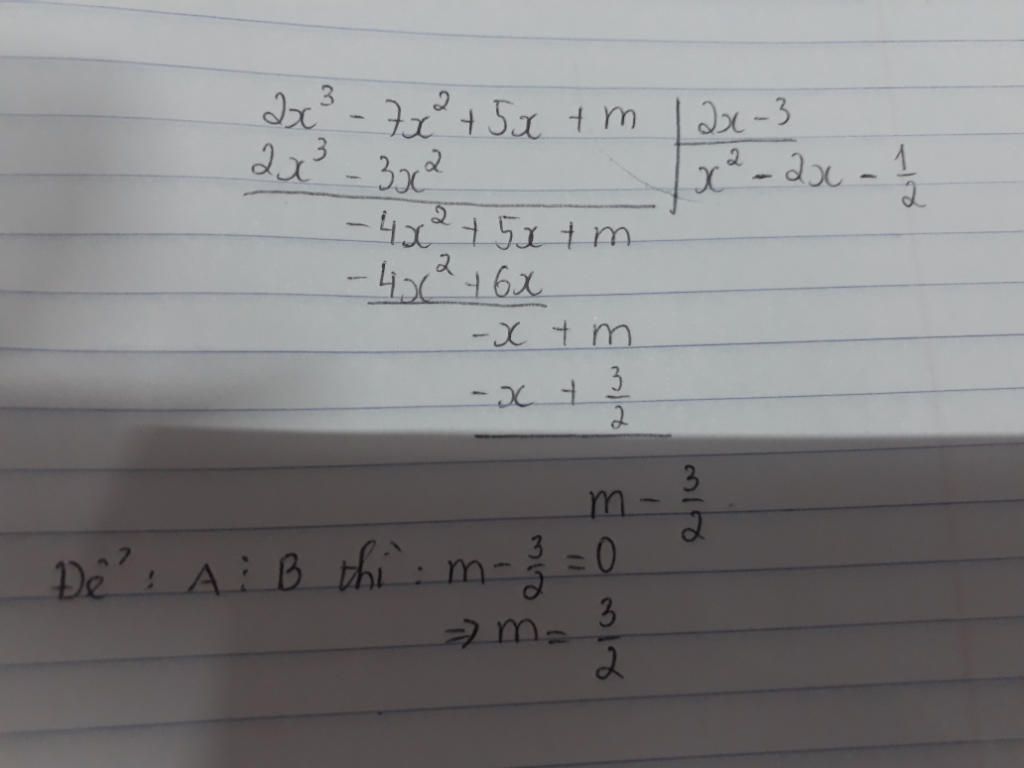 2x³ - 7x² + 5x + m | 2x - 3
2x³ - 3x² | x² - 2x - 1/2
-4x² + 5x + m
-4x² + 6x
-x + m
-x + 3/2
m - 3/2
Để : A ⋮ B thì : m - 3/2 = 0
⇒ m = 3/2